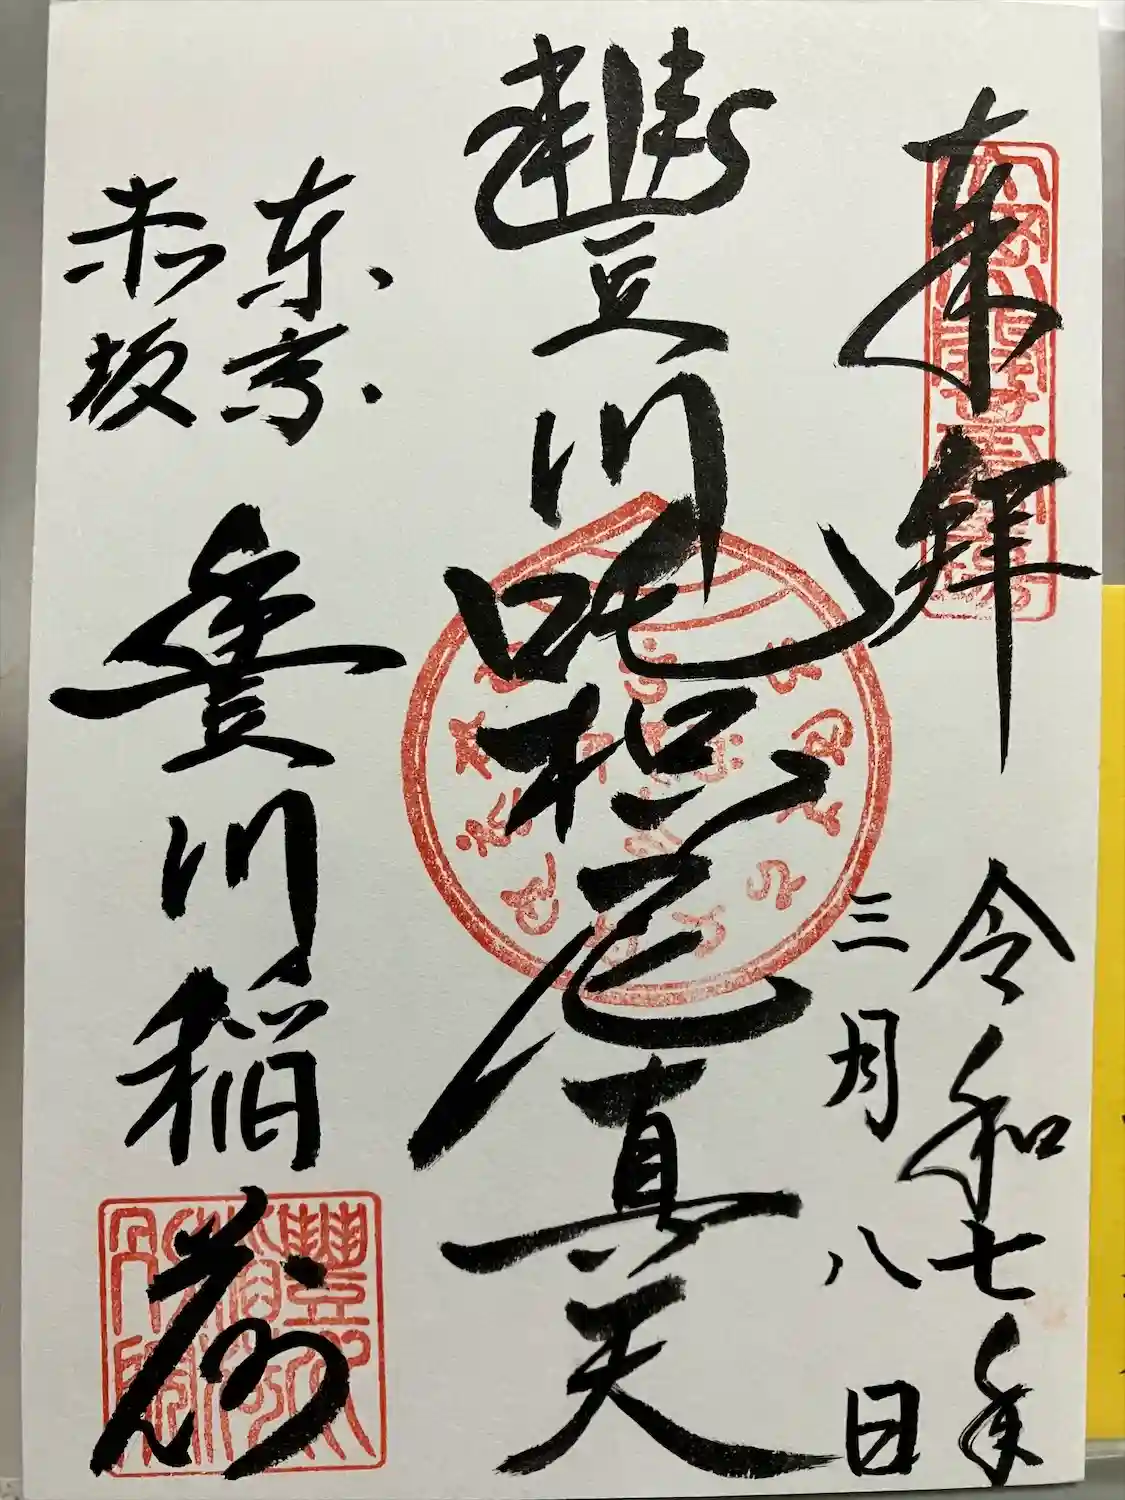 来拝
令和七年
三月八日
豊川吒枳尼真天
東京
赤坂
豊川稲荷